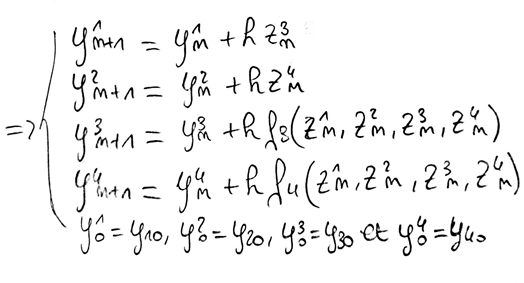 y¹ₘ₊₁ = y¹ₘ + h z³ₘ
y²ₘ₊₁ = y²ₘ + h z⁴ₘ
=> y³ₘ₊₁ = y³ₘ + h f₃(z¹ₘ, z²ₘ, z³ₘ, z⁴ₘ)
y⁴ₘ₊₁ = y⁴ₘ + h f₄(z¹ₘ, z²ₘ, z³ₘ, z⁴ₘ)
y¹₀ = y₁₀, y²₀ = y₂₀, y³₀ = y₃₀ et y⁴₀ = y₄₀